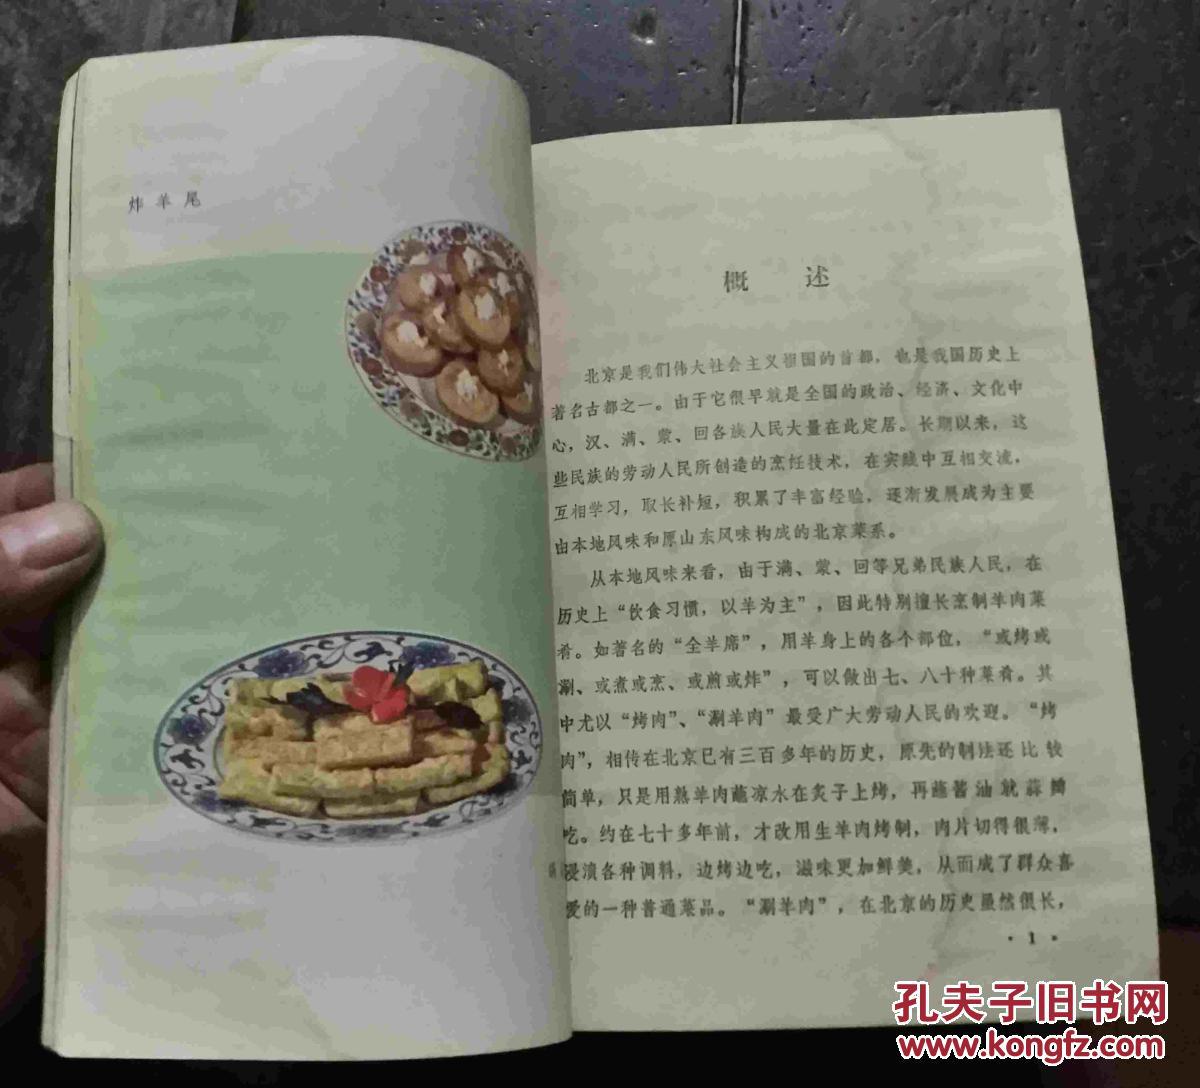 炸羊尾
概 述
北京是我们伟大社会主义祖国的首都，也是我国历史上
著名古都之一。由于它很早就是全国的政治、经济、文化中
心，汉、满、蒙、回各族人民大量在此定居。长期以来，这
些民族的劳动人民所创造的烹饪技术，在实践中互相交流，
互相学习，取长补短，积累了丰富经验，还渐发展成为主要
由本地风味和原山东风味构成的北京菜系。
从本地风味来看，由于满、蒙、回等兄弟民族人民，在
历史上“饮食习惯，以羊为主”，因此特别擅长烹制羊肉菜
肴。如著名的“全羊席”，用羊身上的各个部位，“或烤或
涮、或煮或烹、或煎或炸”，可以做出七、八十种菜肴。其
中尤以“烤肉”、“涮羊肉”最受广大劳动人民的欢迎。“烤
肉”，相传在北京已有三百多年的历史，原先的制法还比较
简单，只是用熟羊肉蘸凉水在炙子上烤，再蘸酱油就蒜瓣
吃。约在七十多年前，才改用生羊肉烤制，肉片切得很薄，
浸渍各种调料，边烤边吃，滋味更加鲜美，从而成了群众喜
爱的一种普通菜品。“涮羊肉”，在北京的历史虽然很长，
·1·
孔夫子旧书网
www.kongfz.com